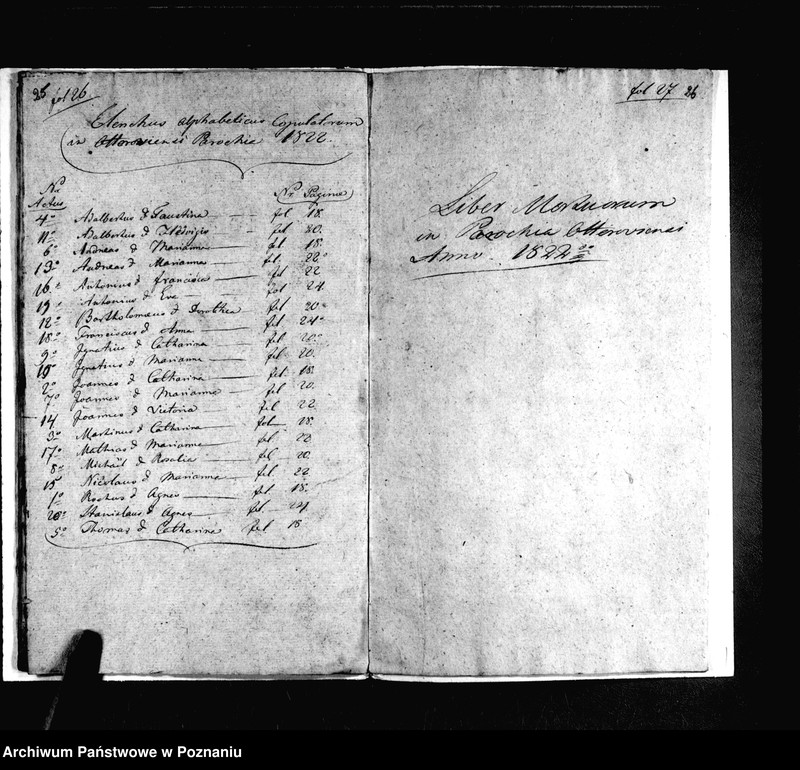 25 fol 26
Elenchus alphabeticus Copulatorum
in Ottoroviensi Parochia 1822.
Nr Actus Nr Paginæ
4o Adalbertus & Faustina fol 18.
11o Adalbertus & fol 20.
6o Andreas & Marianna fol 18.
13o Andreas & Marianna fol. 22o
16o Antonius & Francisca fol 22
19o Antonius & Eva fol 24
12o Bartholomæus & Dorothea fol 20o
18o Franciscus & Anna fol. 24o
9o Ignatius & Catharina fol 20o
10o Ignatius & Marianna fol 20.
2o Joannes & Catharina fol 18.
7o Joannes & Marianna fol 20.
14 Joannes & Victoria fol 22
3o Martinus & Catharina fol 18.
17o Mathias & Marianna fol 22
8o Michaël & Rosalia fol 20.
15 Nicolaus & Marianna fol 22
1o Rochus & Agnes fol. 18.
20o Stanislaus & Agnes fol. 24.
5o Thomas & Catharina fol 18
fol 27 26
Liber Mortuorum
in Parochia Ottoroviensi
Anno 1822do
Archiwum Państwowe w Poznaniu